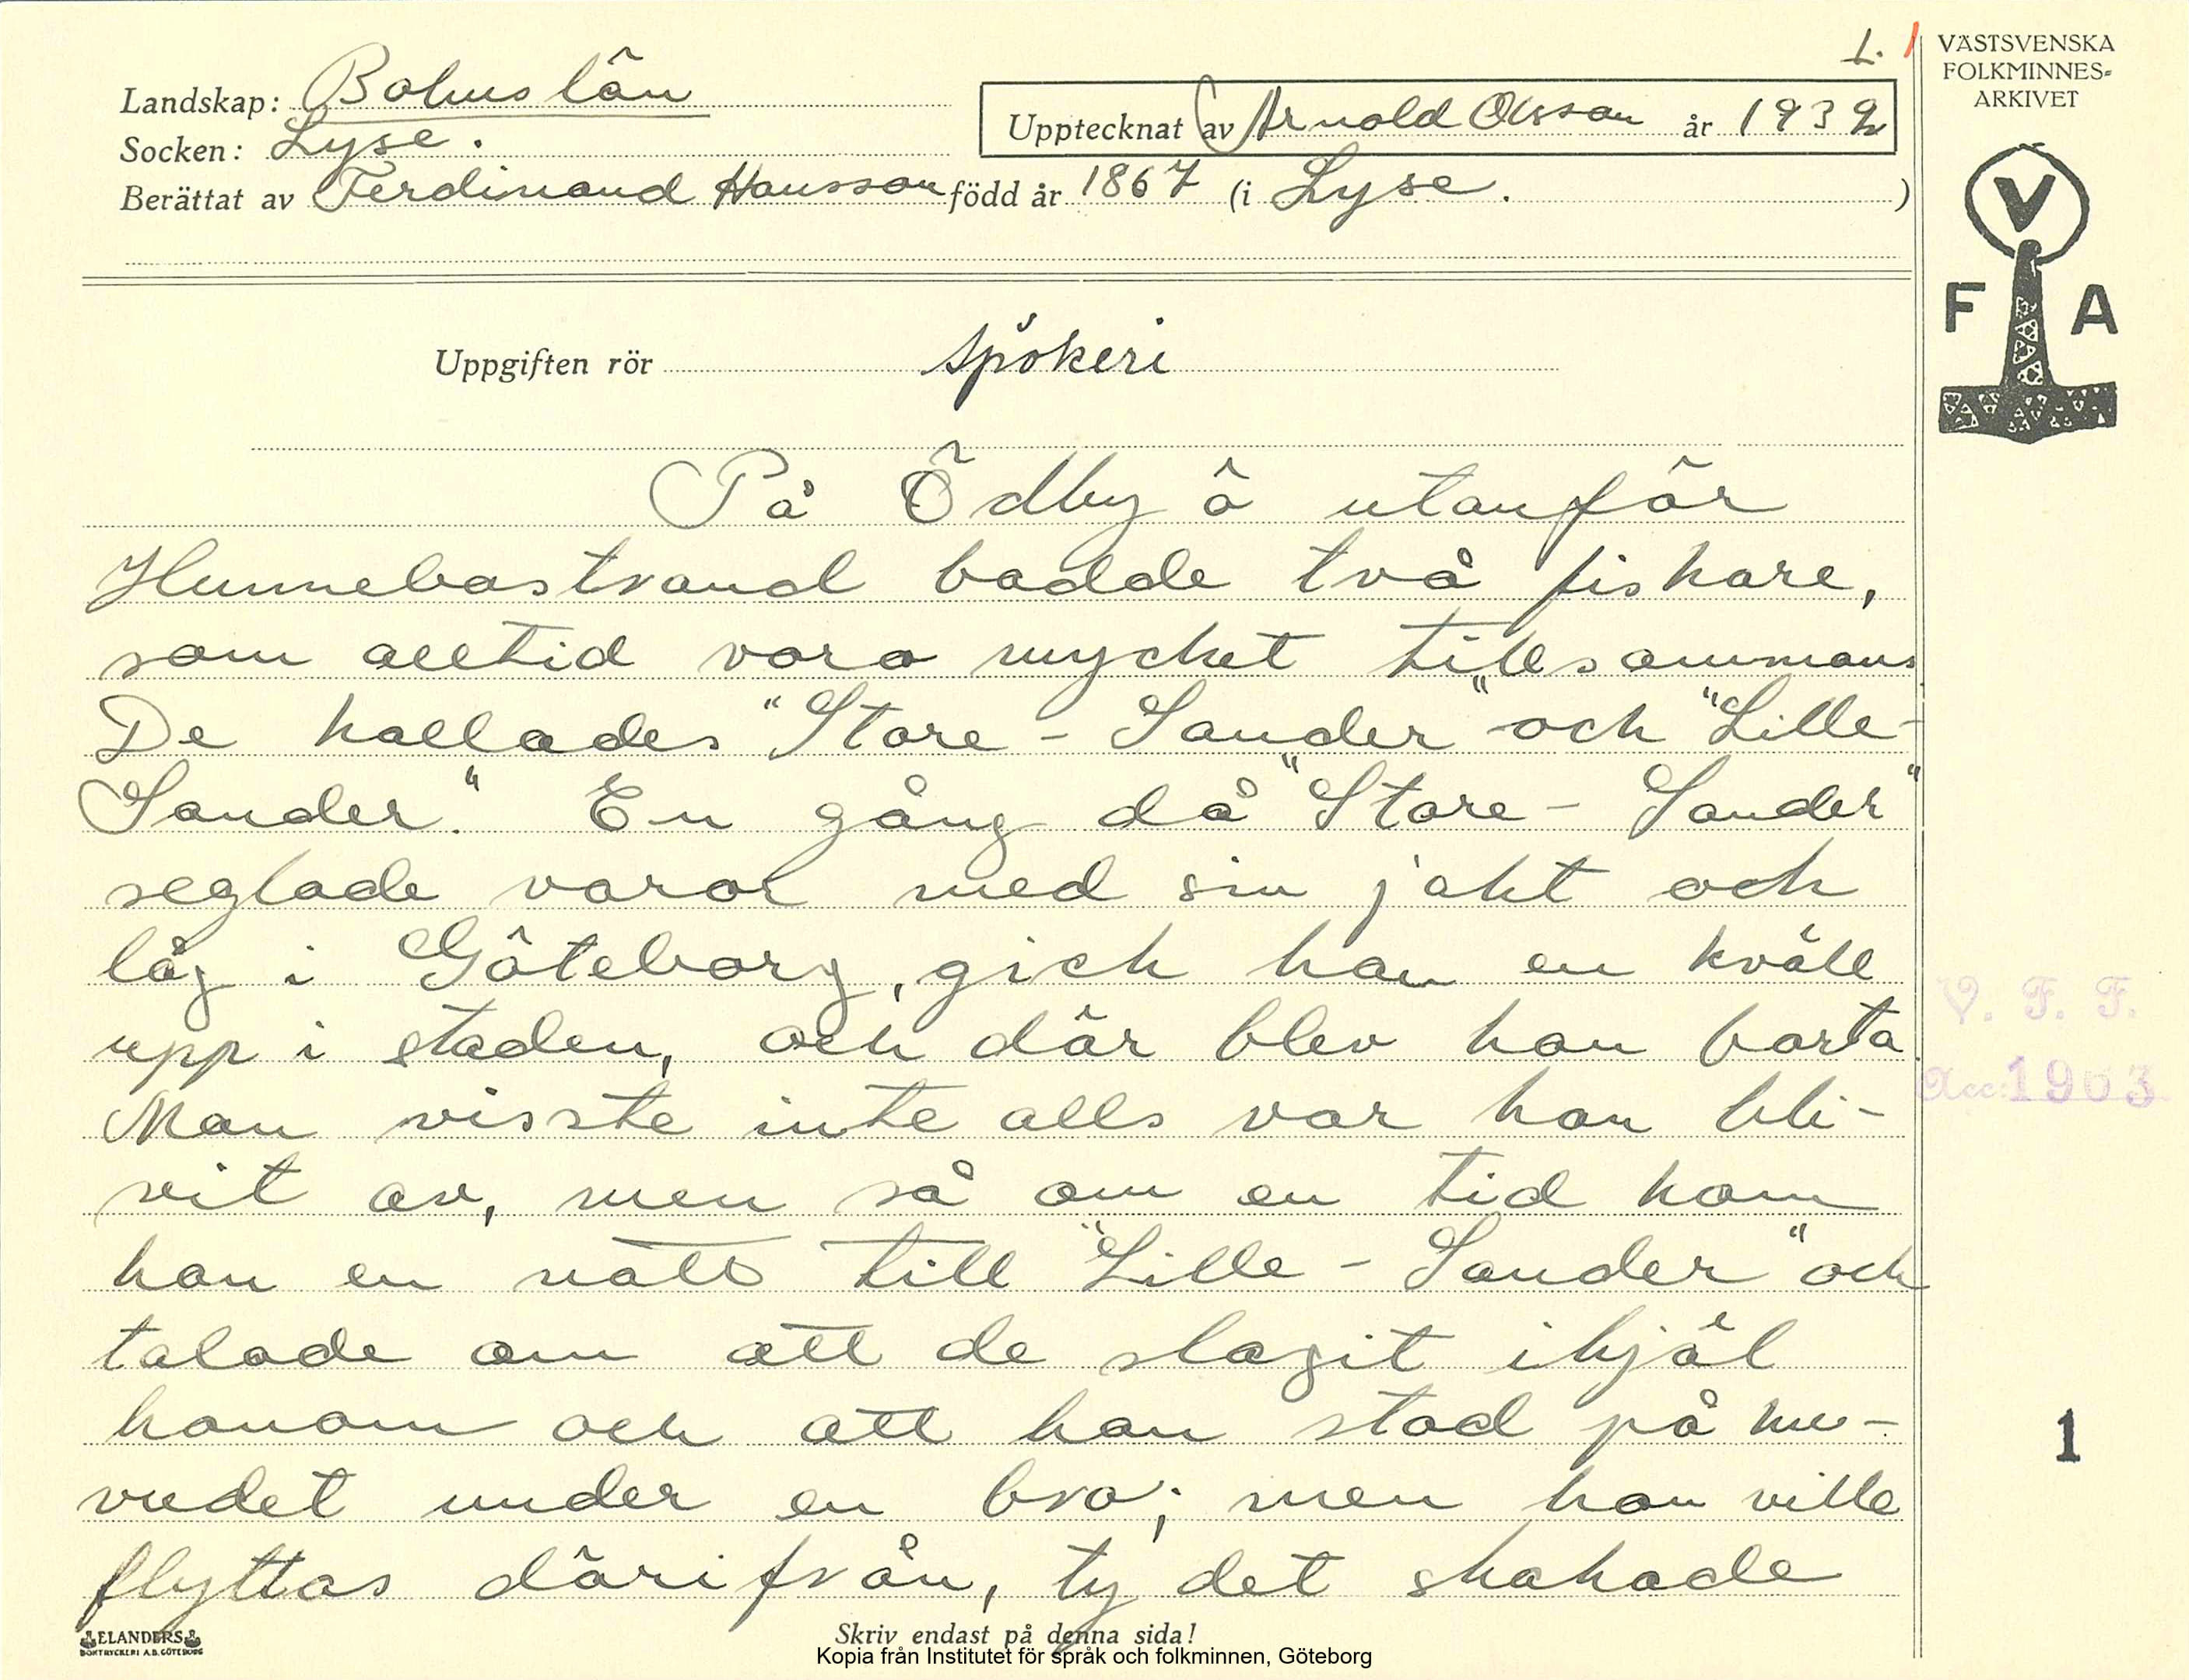 1. 1
VÄSTSVENSKA
FOLKMINNES=
ARKIVET
Landskap: Bohuslän
Upptecknat av Arnold Olsson år 1932
Socken: Lyse.
Berättat av Ferdinand Hansson född år 1867 (i Lyse. )
V
F A
Uppgiften rör spökeri
På Ödby ö utanför
Hunnebostrand bodde två fiskare,
som alltid voro mycket tillsammans.
De kallades "Store-Sander" och "Lille-
Sander." En gång då "Store-Sander"
seglade varor med sin jakt och
låg i Göteborg, gick han en kväll
upp i staden, och där blev han borta.
Man visste inte alls var han bli-
vit av, men så om en tid kom
han en natt till "Lille-Sander" och
talade om att de slagit ihjäl
honom och att han stod på hu-
vudet under en bro; men han ville
flyttas därifrån, ty det skakade
V. F. F.
Acc: 1903
1
ELANDERS
BOKTRYCKERI A.B. GÖTEBORG
Skriv endast på denna sida!
Kopia från Institutet för språk och folkminnen, Göteborg